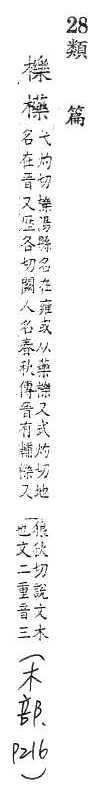 28
類篇
櫟㰛弋灼切櫟陽縣名在雍或从藥櫟又式灼切地
名在晉又歷各切闕人名春秋傳晉有輔櫟又
狼狄切說文木
也文二重音三
(木部、p216)